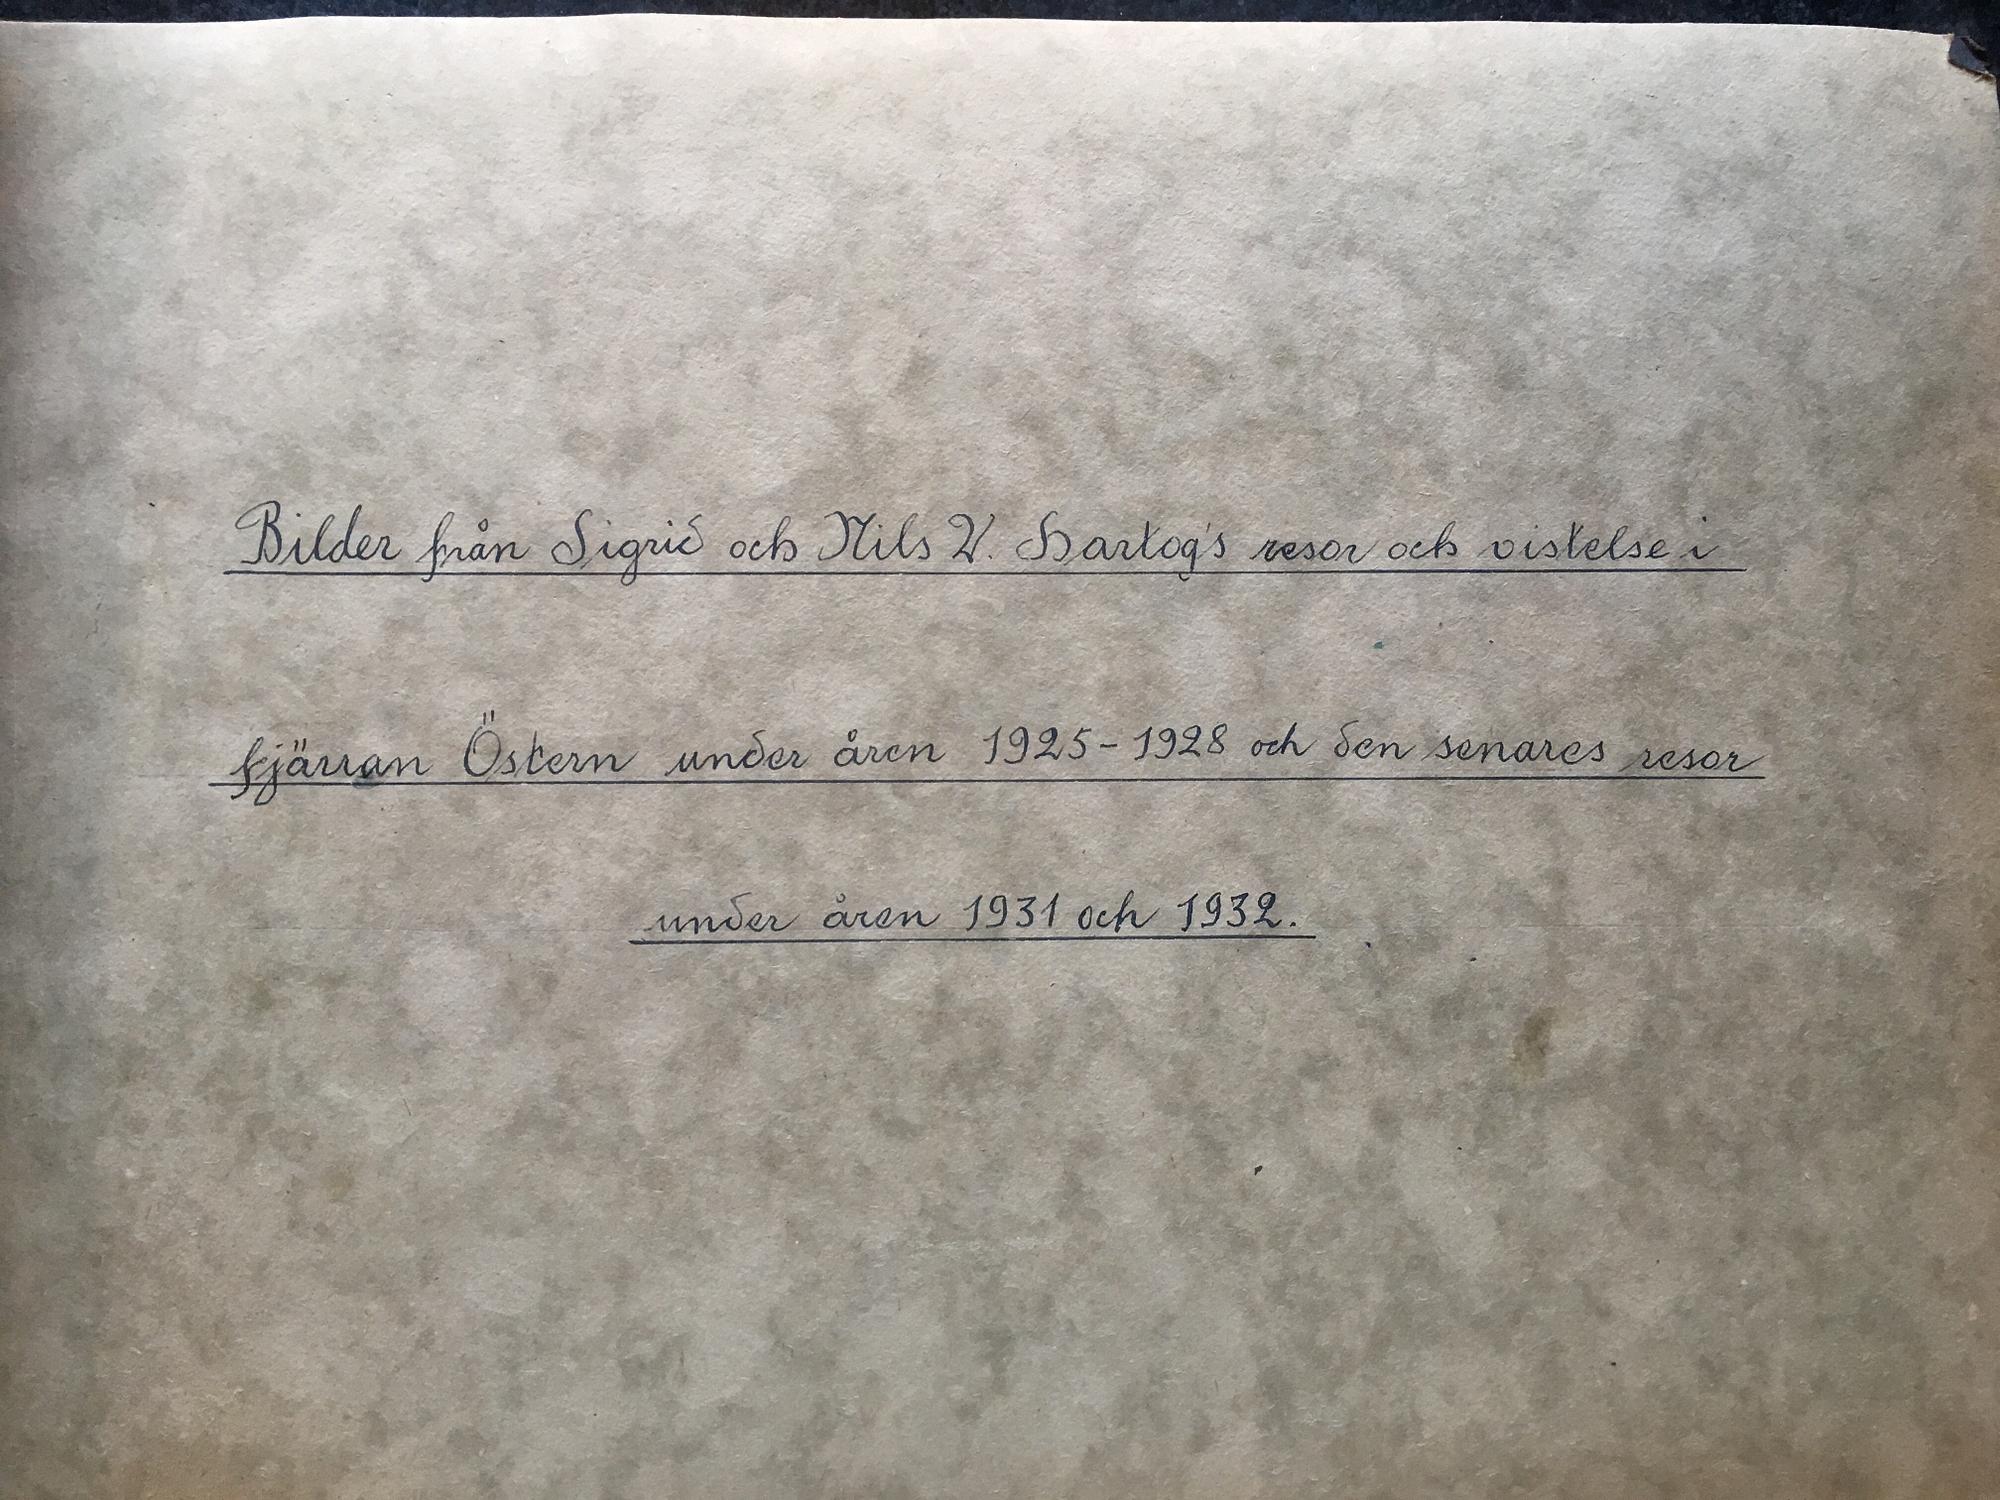 Bilder från Sigrid och Nils V. Hartog's resor och vistelse i
fjärran Östern under åren 1925-1928 och den senares resor
under åren 1931 och 1932.